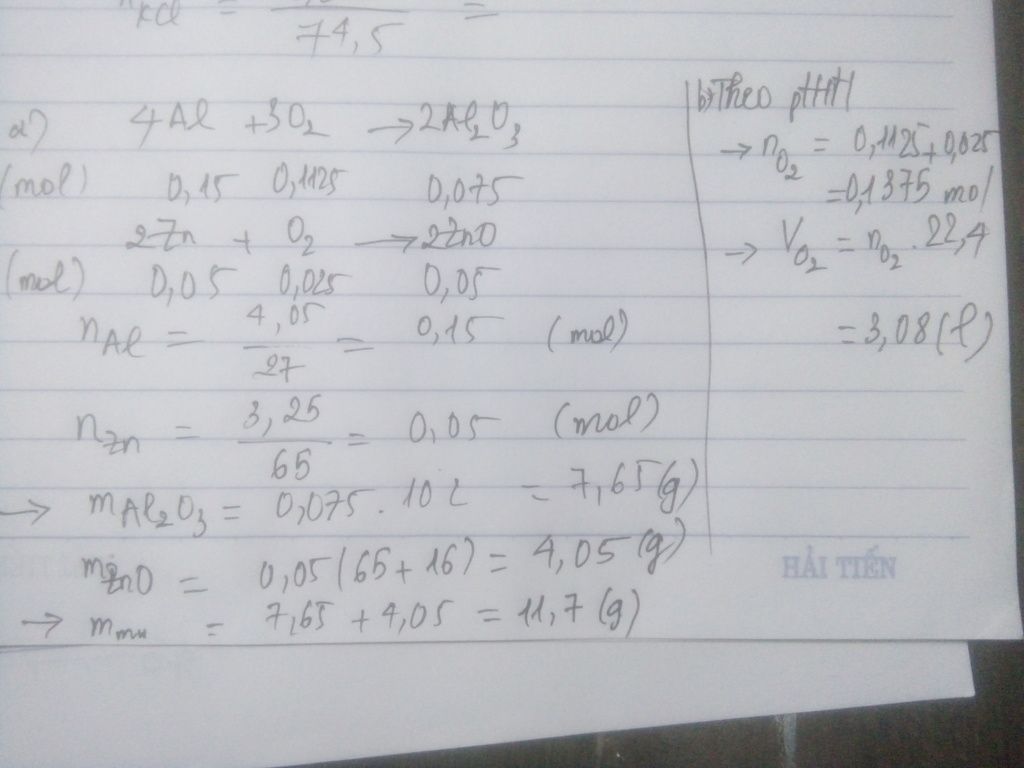 nKCl = 74,5 =
a) 4Al + 3O2 → 2Al2O3
(mol) 0,15 0,1125 0,075
2Zn + O2 → 2ZnO
(mol) 0,05 0,025 0,05
nAl = 4,05 / 27 = 0,15 (mol)
nZn = 3,25 / 65 = 0,05 (mol)
→ mAl2O3 = 0,075 . 102 = 7,65 (g)
mZnO = 0,05 (65 + 16) = 4,05 (g)
→ m = 7,65 + 4,05 = 11,7 (g)
b) Theo pTHH
→ nO2 = 0,1125 + 0,025
= 0,1375 mol
→ VO2 = nO2 . 22,4
= 3,08 (l)
HẢI TIẾN